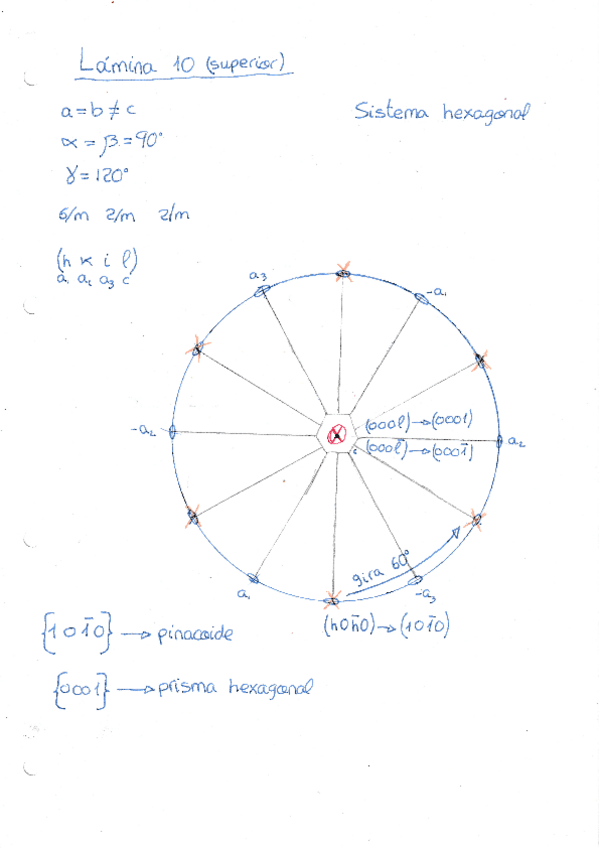 Lámina 10 (superior)
a = b ≠ c
Sistema hexagonal
α = β = 90°
γ = 120°
6/m 2/m 2/m
(h k i l)
a₁ a₂ a₃ c
a₃
-a₁
(000l) → (0001)
-a₂
(000l̄) → (0001̄)
c
a₂
gira 60°
a₁
-a₃
(h0h̄0) → (101̄0)
{101̄0} → pinacoide
{0001} → prisma hexagonal